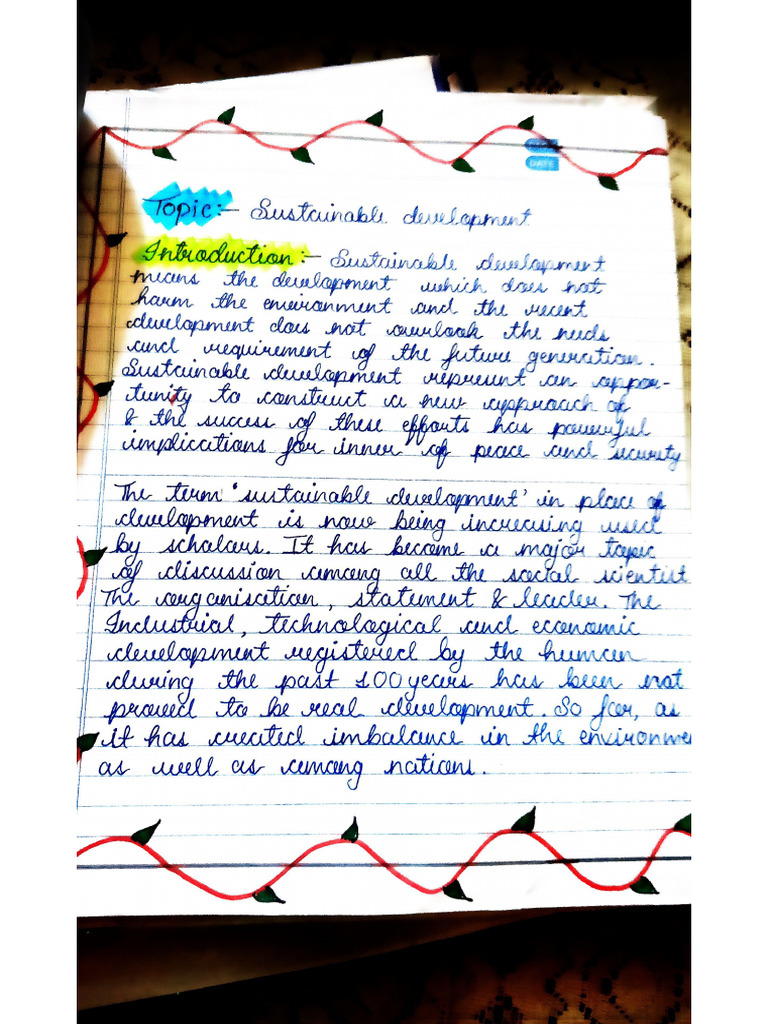 DATE
Topic:- Sustainable development
Introduction:- Sustainable development
means the development which does not
harm the environment and the recent
development does not overlook the needs
and requirement of the future generation.
Sustainable development represent an oppor-
tunity to construct a new approach of
& the success of these efforts has powerful
implications for inner of peace and security
The term 'sustainable development' in place of
development is now being increasing used
by scholars. It has become a major topic
of discussion among all the social scientist
The organisation, statement & leader. The
Industrial, technological and economic
development registered by the human
during the past 100 years has been not
proved to be real development. So far, as
it has created imbalance in the environme
as well as among nations.